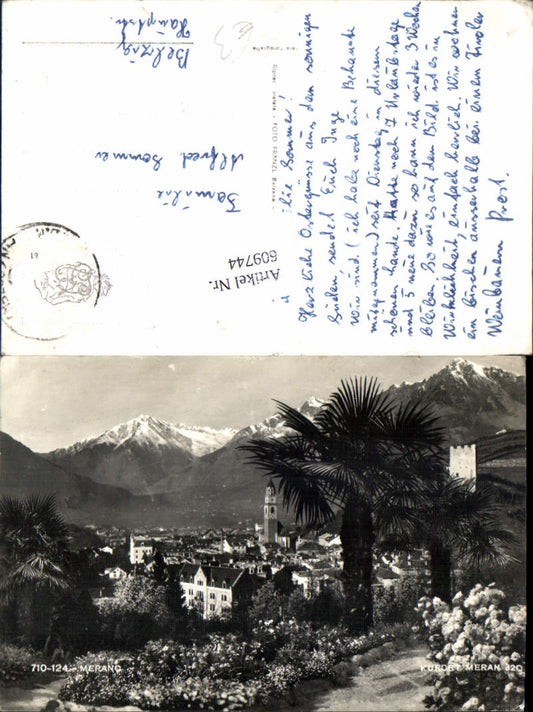 Liebe Sommer!
Herzliche Ostergrüsse aus dem sonnigen
Süden sendet Euch Inge
Wir sind (ich habe noch eine Bekannte
mitgenommen) seit Dienstag in diesem
schönen Lande. Hatte noch 7 Urlaubstage
und 5 neue dazu so kann ich wieder 3 Wochen
bleiben. So wie es auf dem Bild ist es in
Wirklichkeit, einfach herrlich. Wir wohnen
ein bischen ausserhalb bei einem Tiroler
Weinbauern Prost.
Familie
Alfred Sommer
Belzig
Hauptstr.
63
Artikel Nr.
609744
61
710-124 - MERANO
KURORT MERAN 320